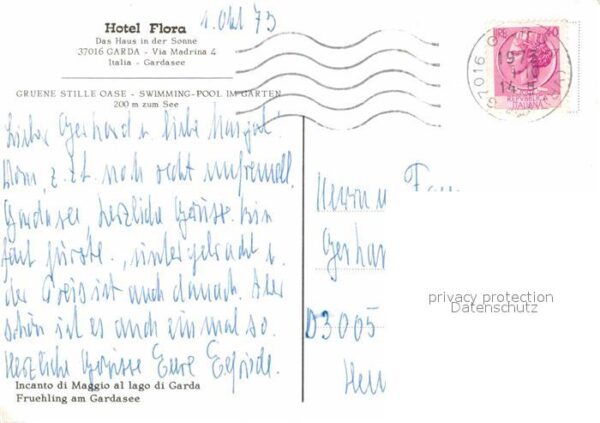 1. Okt 73
Hotel Flora
Das Haus in der Sonne
37016 GARDA - Via Madrina 4
Italia - Gardasee
GRUENE STILLE OASE - SWIMMING-POOL IM GARTEN
200 m zum See
Lieber Gerhard u. liebe Margot!
z. Zt. noch recht
Gardasee herzliche Grüsse. Bin
fast untergebracht u.
der Preis ist auch danach. Aber
schön ist es auch einmal so.
Herzliche Grüsse Eure
Incanto di Maggio al lago di Garda
Fruehling am Gardasee
LIRE 40
REPVBBLICA
ITALIANA
37016
1973
Herrn u. Frau
Gerhar
D3005
Hem
privacy protection
Datenschutz